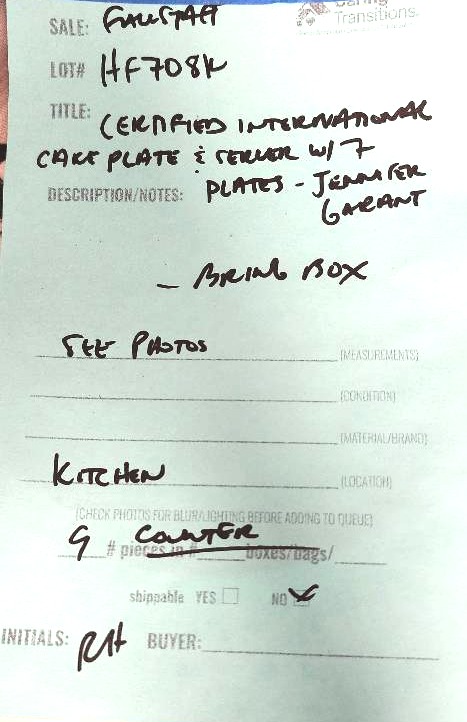 SALE: FALLSTAFF
Caring
Transitions.
LOT# HF708K
TITLE: CERTIFIED INTERNATIONAL
CAKE PLATE & SERVER W/ 7
DESCRIPTION/NOTES: PLATES - JENNIFER
GARANT
- BRING BOX
SEE PHOTOS (MEASUREMENTS)
(CONDITION)
(MATERIAL/BRAND)
KITCHEN (LOCATION)
(CHECK PHOTOS FOR BLUR/LIGHTING BEFORE ADDING TO QUEUE)
9 COUNTER
# pieces in # boxes/bags/
shippable YES NO
INITIALS: RH BUYER: